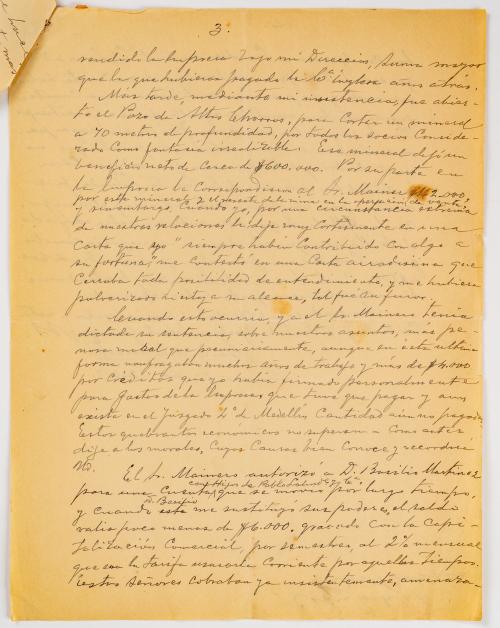 3.
vendido la Empresa bajo mi Direccion, suma mayor
que la que hubieran pagado la Cª Inglesa años atrás.
Mas tarde, mediante mi insistencia, fue abier-
to el Pozo de Altos Chorros, para cortar un mineral
a 70 metros de profundidad, por todos los socios conside-
rado como fantasia irrealizable. Ese mineral dejó un
beneficio neto de cerca de $600.000. Por su parte en
la Empresa le correspondieron al Sr. Mainero 2.000,
por este mineral y el resto de la mina en la operacion de venta,
y sin embargo, cuando yo, por una circunstancia extrema
de nuestras relaciones le dije muy cortesmente en una
carta que "yo siempre habia contribuido con algo a
su fortuna," me contestó en una carta airadisima que
cerraba toda posibilidad de entendimiento, y me hubiera
pulverizado si estoy a su alcance, tal fue su furor.
Cuando esto ocurria, ya el Sr. Mainero tenia
dictada su sentencia, sobre nuestros asuntos, mas pe-
nosa moral que pecuniariamente, aunque en esta ultima
forma naufragaban muchos años de trabajo y mas de $4.000
por créditos que yo habia firmado personalmente
para gastos de la Empresa, que tuve que pagar y aun
existe en el Juzgado 2º de Medellin cantidad aun no pagada.
Estos quebrantos economicos no superan - como antes
dije a los morales, cuyas causas bien conoce y recordará
Ud.
El Sr. Mainero autorizó a D. Basilio Martinez
con Hijos de Pablo Lalinde y Cª
para una cuenta, que se movió por largo tiempo,
D. Basilio
y cuando este me sustituyó sus poderes, el saldo
valia poco menos de $6.000. gravado con la capi-
talizacion comercial, por semestres, al 2% mensual
que era la tarifa usuraria corriente por aquellos tiempos.
Estos Señores cobraban ya insistentemente, amenaza-